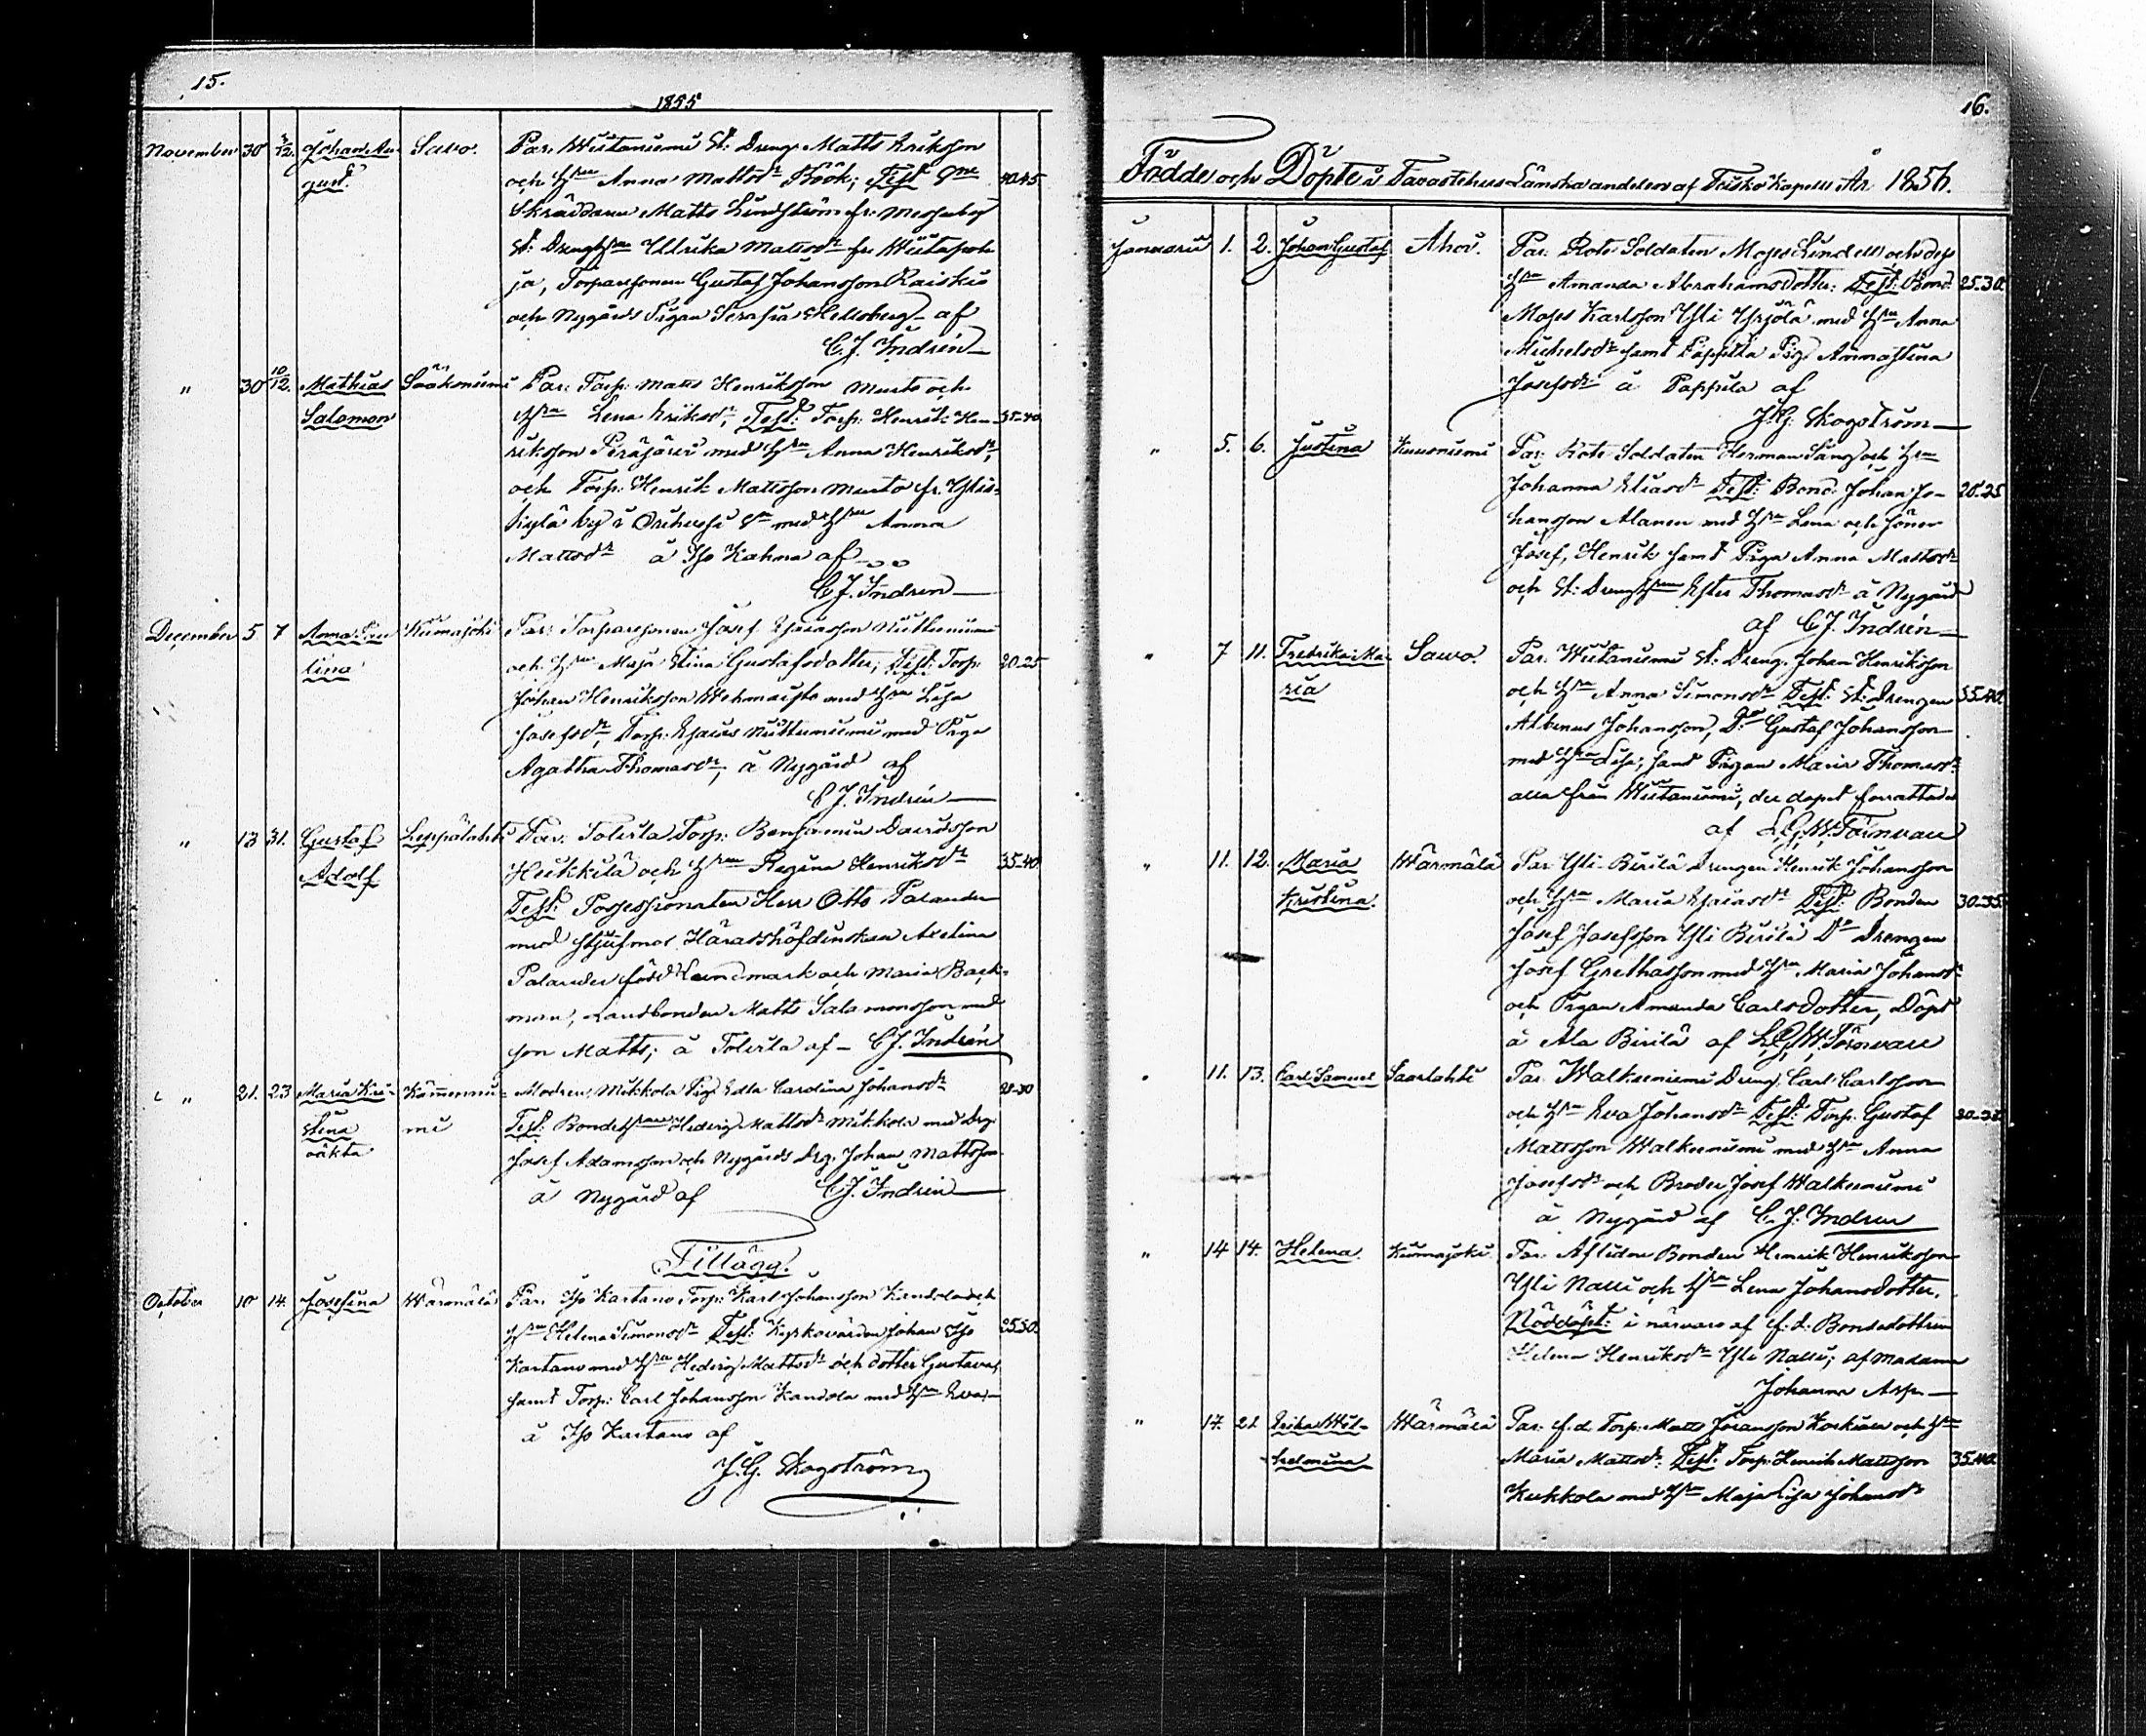 15.
1855
November 30 2/12. Johan Au- Savo. Par. Wiitaniemi St: Dreng Matts Eriksson
gust. och H:ru Anna Mattsd:r Böök; Test: 40.45
Skräddaren Matts Lindström fr.
St: Dreng H:ru Ullrika Mattsd:r fr.
ja, Torparesonen Gustaf Johansson Raiskio
och Nygårds Pigan Serafia Hellsberg af
C. J. Indrén
" 30 10/12. Mathias Sääksniemi Par: Torp: Matts Henriksson Murto och
Salomon H:ru Lena Eriksd:r, Test: Torp: Henrik Hen- 35-40
riksson Peräjärvi med H:ru Anna Henriksd:r,
och Torp: Henrik Mattsson Murto fr. Ylis-
kylä by i Orihvesi S:n med H:ru Anna
Mattsd:r å Iso Kahna af
C J. Indrén
December 5 7 Anna Pau- Kiimajoki Par: Torparesonen Josef Esaiasson Niittuniemi
lina och H:ru Maja Stina Gustafsdotter; Test: Torp: 20.25
Johan Henriksson Wehmaisto med H:ru Lisa
Josefsd:r, Torp: Esaias Niittuniemi med Piga
Agatha Thomasd:r, å Nygård af
C J. Indrén
" 13 31. Gustaf Leppälahti Par. Tolusta Torp: Benjamin Davidsson
Adolf Heikkilä och H:ru Regina Henriksd:r 35-40
Test: Possessionaten Herr Otto Palander
med stjufmor Häradshöfdinskan Axelina
Palander född Lundmark och Maria Back-
man, Landbonden Matts Salomonsson med
son Matts; å af C J. Indrén
" 21. 23 Maria Kri- Kämmenni- Modren, Mikkola Pig. Edla Carolina Johansd:r 25-30
stina mi Test: Bonde H:run Hedvig Mattsd:r Mikkola med Drg.
oäkta Josef Adamsson och Nygårds Drg. Johan Mattsson
å Nygård af C J. Indrén
Tillägg.
October 10 14. Josefina Wärmälä Par: Iso Kartano Torp: Karl Johansson Kandola och
H:ru Helena Simonsd:r Test: Kyrkovärden Johan Iso 25.30.
Kartano med H:ru Hedvig Mattsd:r och dotter Gustava,
samt Torp: Carl Johansson Kandola med H:ru Eva
å Iso Kartano af
J. G. Skogström
16.
Födde och Döpte i Tavastehus Länska andelen af Teisko Kapell År 1856.
Januarii 1. 2. Johan Gustaf Ahoi. Par. Rote Soldaten Moses Lindell och dess
H:ru Amanda Abrahamsdotter: Test: Bond: 25.30.
Moses Karlsson Yli Yrjölä med H:ru Anna
Michelsd:r samt Pappila Pig. Anna Stina
Josefsd:r å Pappila af
J. G. Skogström
" 5. 6. Justina Kuusniemi Par: Rote Soldaten Herman Lång och H:ru
Johanna Eliasd:r Test: Bond: Johan Jo- 20.25
hansson Alanen med H:ru Lena och söner
Josef, Henrik samt Piga Anna Mattsd:r
och St: Dreng H:run Ester Thomasd:r å Nygård
af C J. Indrén
" 7 11. Fredrika Ma- Savo. Par. Wiitaniemi St: Dreng. Johan Henriksson
ria och H:ru Anna Simonsd:r Test: St: Drengen 35.40.
Albinus Johansson, D:o Gustaf Johansson
med H:ru Lisa; samt Pigan Maria Thomasd:r
alla från Wiitaniemi, der dopet förrättades
af L. G. W. Törnvall
" 11. 12. Maria Wärmälä Par. Yli Birilä Drengen Henrik Johansson
Kristina. och H:ru Maria Esaiasd:r Test: Bonden 30.35
Josef Josefsson Yli Birilä D:o Drengen
Josef Grelhasson med H:ru Maria Johansd:r
och Pigan Amanda Carlsdotter, Döpt
å Ala Birilä af L. G. W. Törnvall
" 11. 13. Carl Samuel Saarlahti Par. Walkeeniemi Dreng. Carl Carlsson
och H:ru Eva Johansd:r Test: Torp: Gustaf
Mattsson Walkeeniemi med H:ru Anna
Josefsd:r och Broder Josef Walkeeniemi
å Nygård af C. J. Indrén
" 14 14. Helena. Kiimajoki Par. Aflidne Bonden Henrik Henriksson
Yli Nalli och H:ru Lena Johansdotter.
Nöddöpt: i närvaro af f. d. Bondedottren
Helena Henriksd:r Yli Nalli; af Madam
Johanna Asp
" 17. 21 Erika Wil- Wärmälä Par. f. d. Torp: Matts Göransson och H:ru
helmina Maria Mattsd:r: Test: Torp: Henrik Mattsson 35.40.
Kukkola med H:ru Maja Lisa Johansd:r